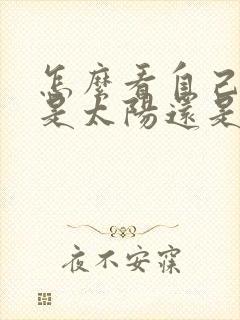 怎麽看自己
是太陽還是
夜不安寐